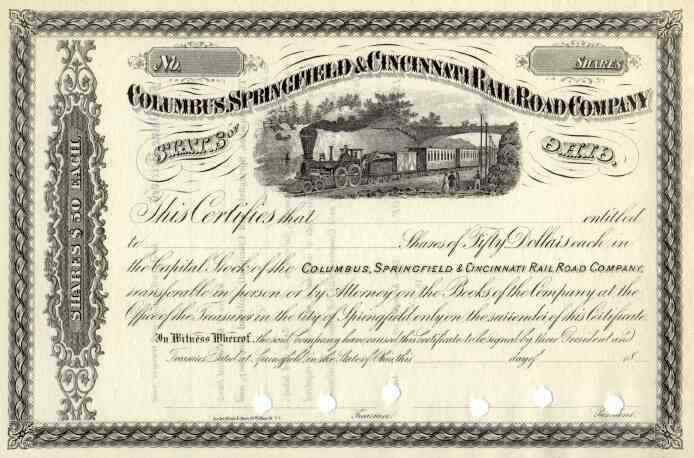 No.
SHARES
COLUMBUS, SPRINGFIELD & CINCINNATI RAIL ROAD COMPANY
STATE OF OHIO.
SHARES $50 EACH.
This Certifies that entitled
to Shares of Fifty Dollars each in
the Capital Stock of the COLUMBUS, SPRINGFIELD & CINCINNATI RAIL ROAD COMPANY,
transferable in person or by Attorney on the Books of the Company at the
Office of the Treasurer in the City of Springfield only on the surrender of this Certificate.
In Witness Whereof, the said Company have caused this certificate to be signed by their President and
Treasurer. Dated at Springfield, in the State of Ohio, this day of 18
Treasurer. President.